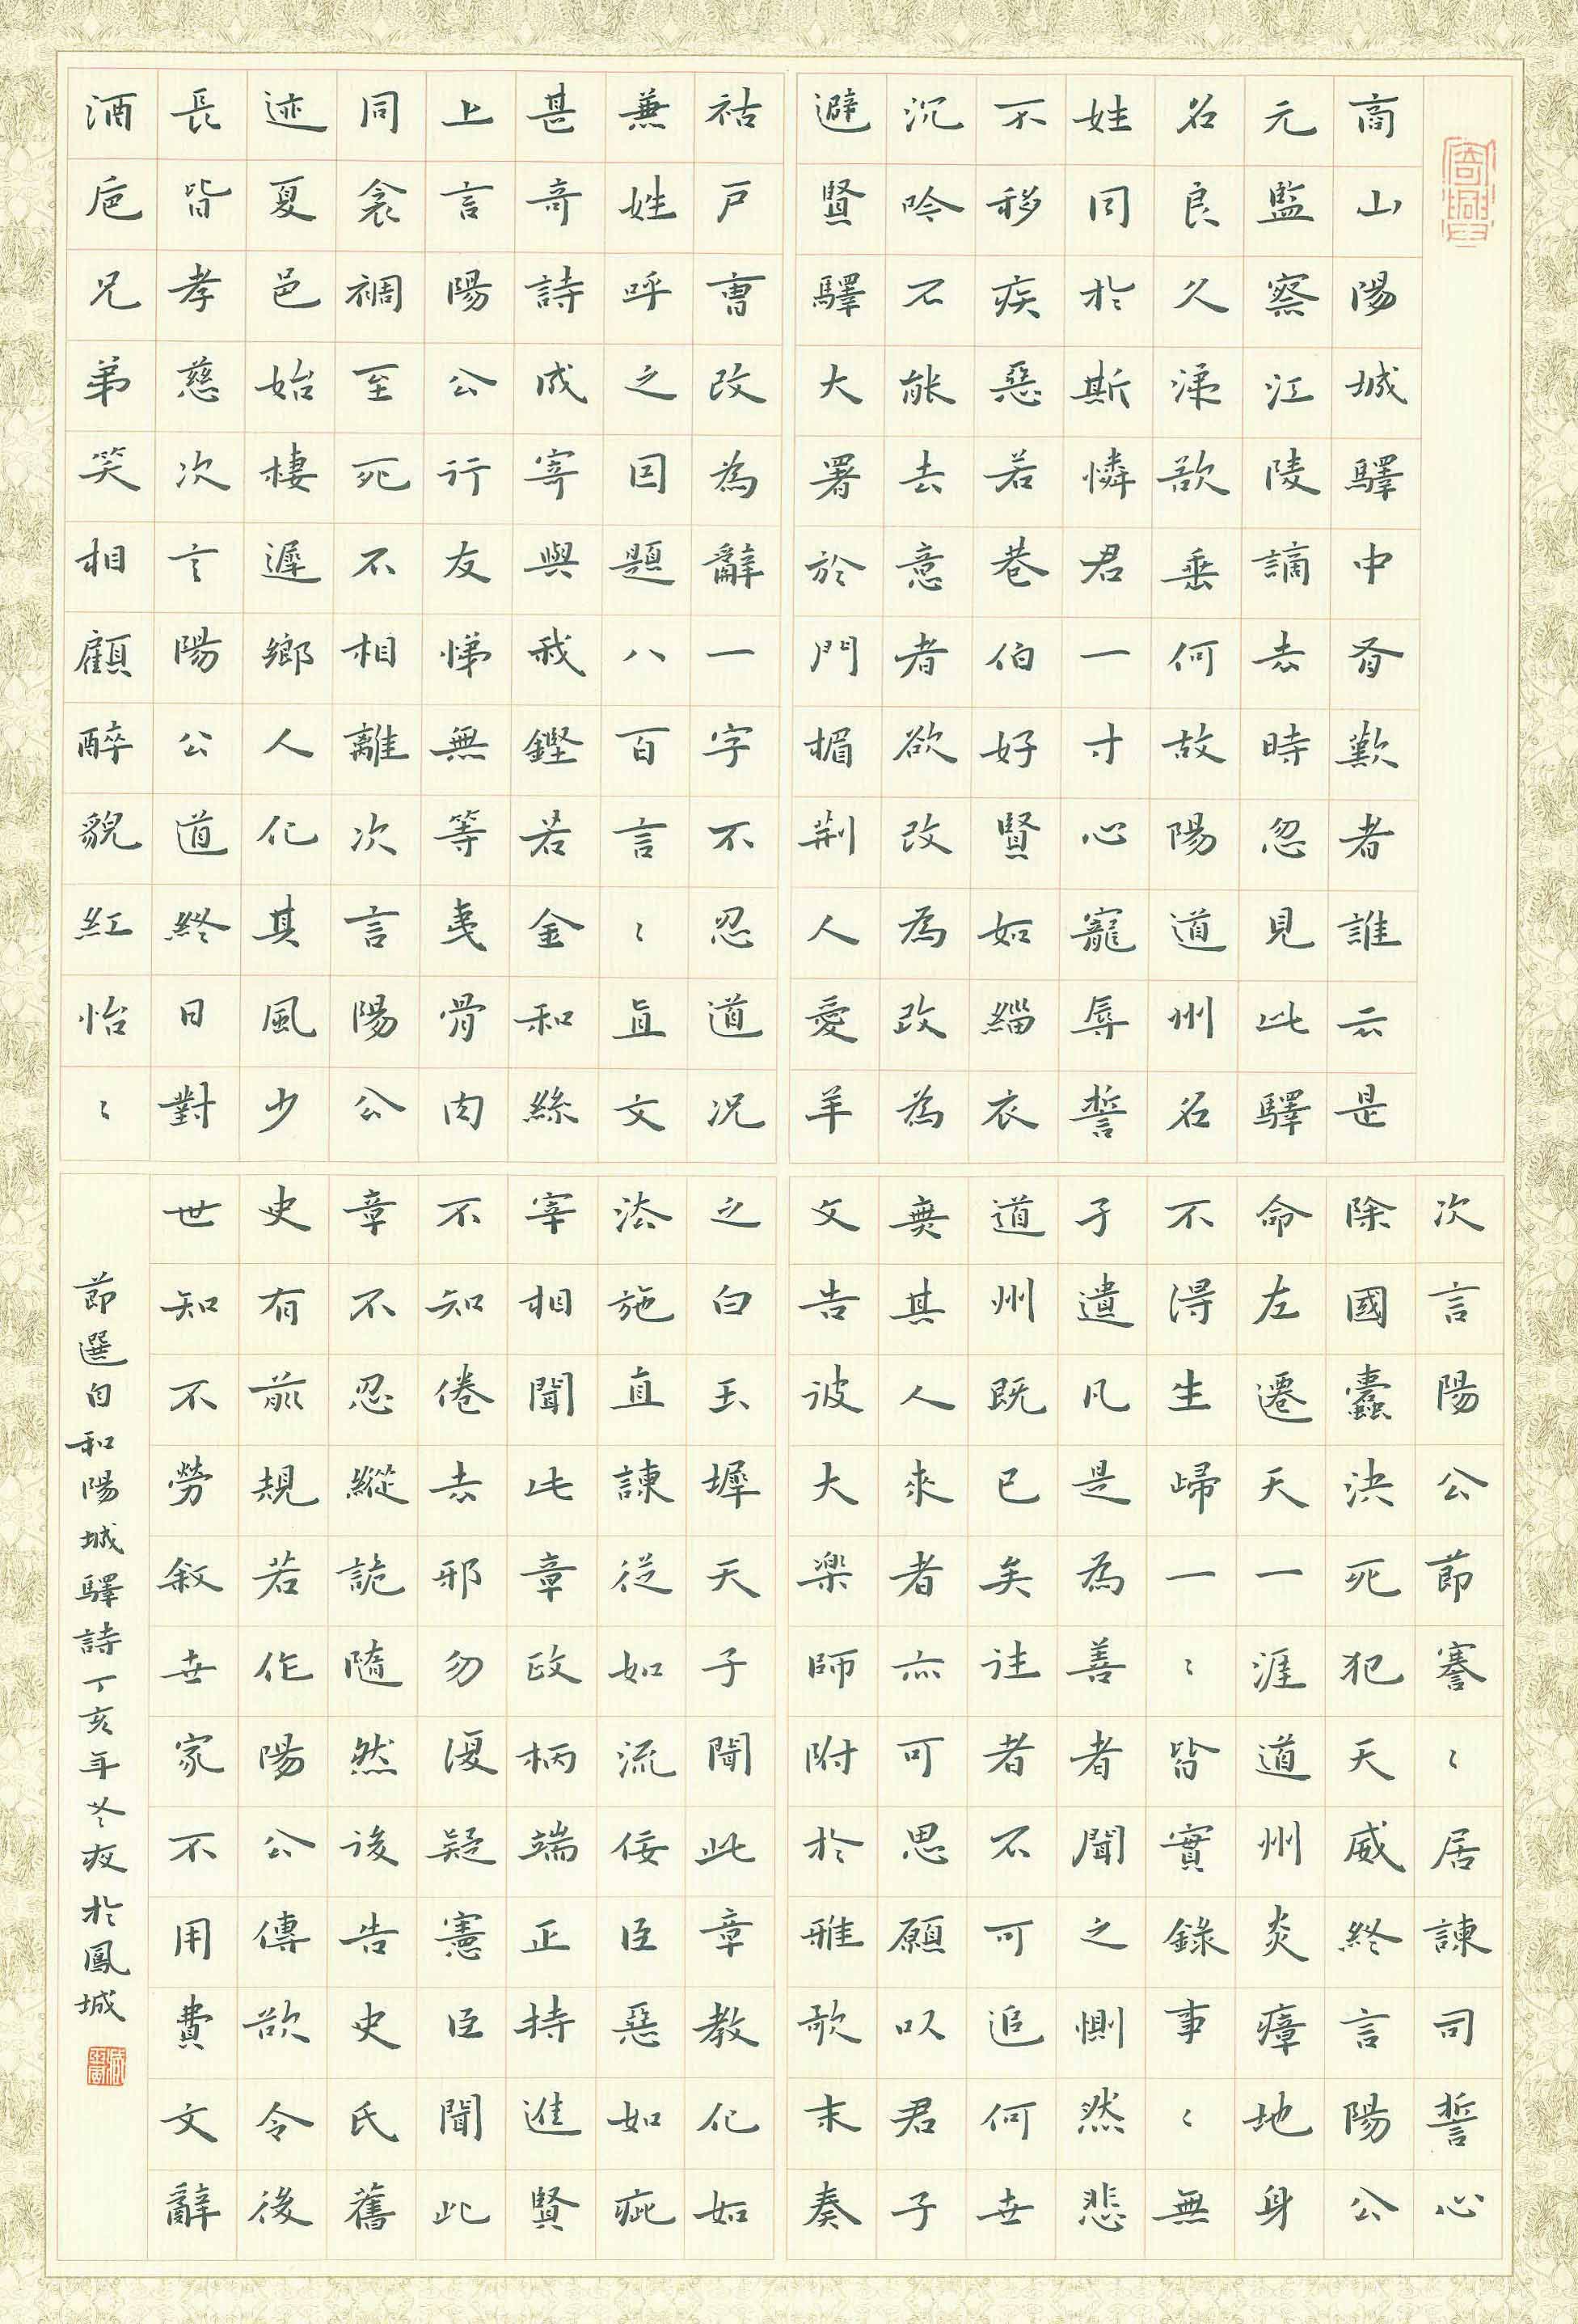 商山陽城驛中有歎者誰云是
元監察江陵謫去時忽見此驛
名良久涕欲垂何故陽道州名
姓同於斯憐君一寸心寵辱誓
不移疾惡若巷伯好賢如緇衣
沉吟不能去意者欲改為改為
避賢驛大署於門楣荆人愛羊
祜戶曹改為辭一字不忍道況
兼姓呼之因題八百言〻直文
甚奇詩成寄與我鏗若金和絲
上言陽公行友悌無等夷骨肉
同衾裯至死不相離次言陽公
迹夏邑始棲遲鄉人化其風少
長皆孝慈次言陽公道終日對
酒卮兄弟笑相顧醉貌紅怡〻
次言陽公節謇〻居諫司誓心
除國蠹決死犯天威終言陽公
命左遷天一涯道州炎瘴地身
不得生歸一〻皆實錄事〻無
孑遺凡是為善者聞之惻然悲
道州既已矣往者不可追何世
無其人來者亦可思願以君子
文告彼大樂師附於雅歌末奏
之白玉墀天子聞此章教化如
法施直諫從如流佞臣惡如疵
宰相聞此章政柄端正持進賢
不知倦去邪勿復疑憲臣聞此
章不忍縱詭隨然後告史氏舊
史有前規若作陽公傳欲令後
世知不勞敘世家不用費文辭
節選白和陽城驛詩丁亥年冬夜於鳳城